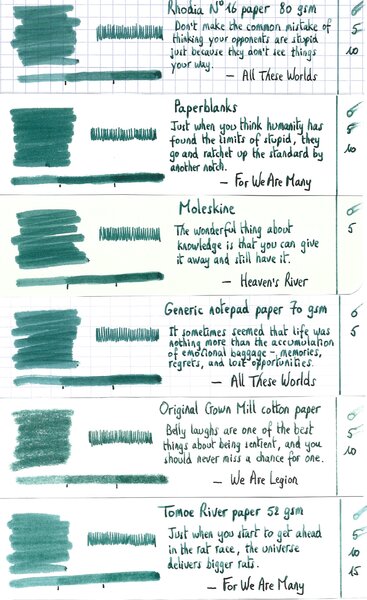 Rhodia N° 16 paper 80 gsm
Don't make the common mistake of
thinking your opponents are stupid
just because they don't see things
your way.
— All These Worlds
0
5
10
Paperblanks
Just when you think humanity has
found the limits of stupid, they
go and ratchet up the standard by
another notch.
— For We Are Many
0
5
10
Moleskine
The wonderful thing about
knowledge is that you can give
it away and still have it.
— Heaven's River
0
5
Generic notepad paper 70 gsm
It sometimes seemed that life was
nothing more than the accumulation
of emotional baggage – memories,
regrets, and lost opportunities.
— All These Worlds
0
5
Original Crown Mill cotton paper
Belly laughs are one of the best
things about being sentient, and you
should never miss a chance for one.
— We Are Legion
0
5
10
Tomoe River paper 52 gsm
Just when you start to get ahead
in the rat race, the universe
delivers bigger rats.
— For We Are Many
0
5
10
15